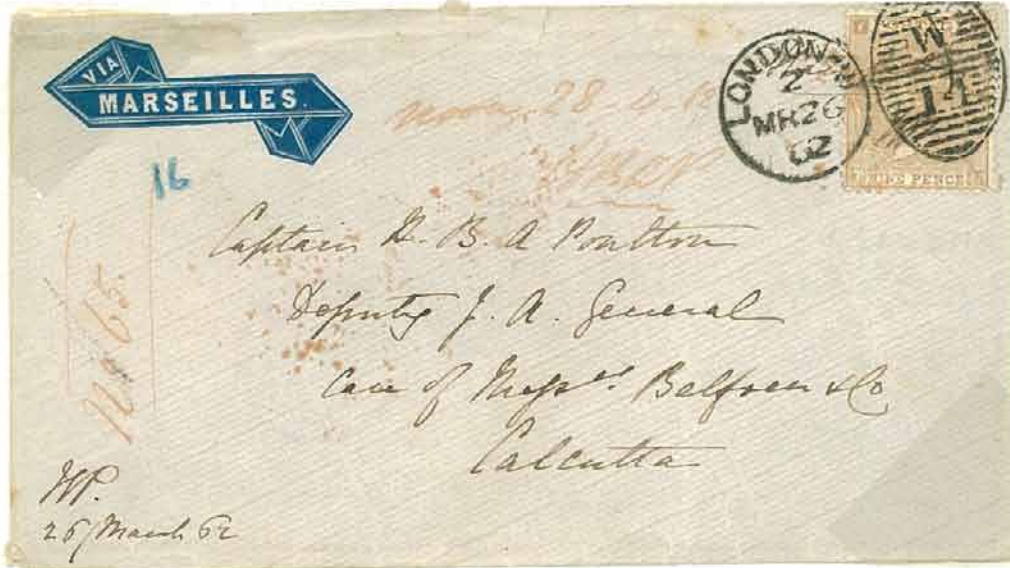 VIA
MARSEILLES.
LONDON-W
2
MR 26
62
W
14
PENCE
16
28
No 65.
Captain H. B. A Poulton
Deputy J. A. General
Care of Messrs Balfour & Co
Calcutta
WP.
26/March 62